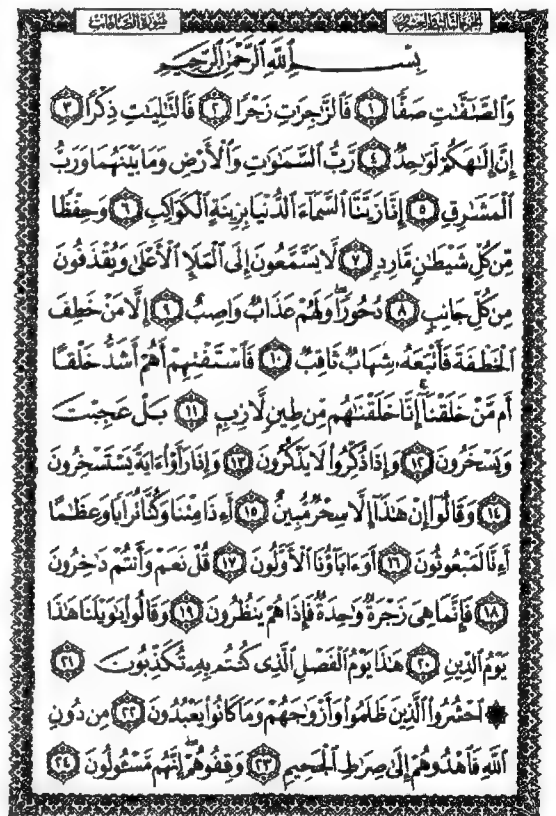 الجزء الثالث والعشرون
سورة الصافات
بِسْمِ اللَّهِ الرَّحْمَٰنِ الرَّحِيمِ
وَالصَّافَّاتِ صَفًّا ١ فَالزَّاجِرَاتِ زَجْرًا ٢ فَالتَّالِيَاتِ ذِكْرًا ٣
إِنَّ إِلَٰهَكُمْ لَوَاحِدٌ ٤ رَّبُّ السَّمَاوَاتِ وَالْأَرْضِ وَمَا بَيْنَهُمَا وَرَبُّ
الْمَشَارِقِ ٥ إِنَّا زَيَّنَّا السَّمَاءَ الدُّنْيَا بِزِينَةٍ الْكَوَاكِبِ ٦ وَحِفْظًا
مِّن كُلِّ شَيْطَانٍ مَّارِدٍ ٧ لَّا يَسَّمَّعُونَ إِلَى الْمَلَإِ الْأَعْلَىٰ وَيُقْذَفُونَ
مِن كُلِّ جَانِبٍ ٨ دُحُورًا ۖ وَلَهُمْ عَذَابٌ وَاصِبٌ ٩ إِلَّا مَنْ خَطِفَ
الْخَطْفَةَ فَأَتْبَعَهُ شِهَابٌ ثَاقِبٌ ١٠ فَاسْتَفْتِهِمْ أَهُمْ أَشَدُّ خَلْقًا
أَم مَّنْ خَلَقْنَا ۚ إِنَّا خَلَقْنَاهُم مِّن طِينٍ لَّازِبٍ ١١ بَلْ عَجِبْتَ
وَيَسْخَرُونَ ١٢ وَإِذَا ذُكِّرُوا لَا يَذْكُرُونَ ١٣ وَإِذَا رَأَوْا آيَةً يَسْتَسْخِرُونَ
١٤ وَقَالُوا إِنْ هَٰذَا إِلَّا سِحْرٌ مُّبِينٌ ١٥ أَءِذَا مِتْنَا وَكُنَّا تُرَابًا وَعِظَامًا
أَءِنَّا لَمَبْعُوثُونَ ١٦ أَوَآبَاؤُنَا الْأَوَّلُونَ ١٧ قُلْ نَعَمْ وَأَنتُمْ دَاخِرُونَ
١٨ فَإِنَّمَا هِيَ زَجْرَةٌ وَاحِدَةٌ فَإِذَا هُمْ يَنظُرُونَ ١٩ وَقَالُوا يَا وَيْلَنَا هَٰذَا
يَوْمُ الدِّينِ ٢٠ هَٰذَا يَوْمُ الْفَصْلِ الَّذِي كُنتُم بِهِ تُكَذِّبُونَ ٢١
۞ احْشُرُوا الَّذِينَ ظَلَمُوا وَأَزْوَاجَهُمْ وَمَا كَانُوا يَعْبُدُونَ ٢٢ مِن دُونِ
اللَّهِ فَاهْدُوهُمْ إِلَىٰ صِرَاطِ الْجَحِيمِ ٢٣ وَقِفُوهُمْ ۖ إِنَّهُم مَّسْئُولُونَ ٢٤